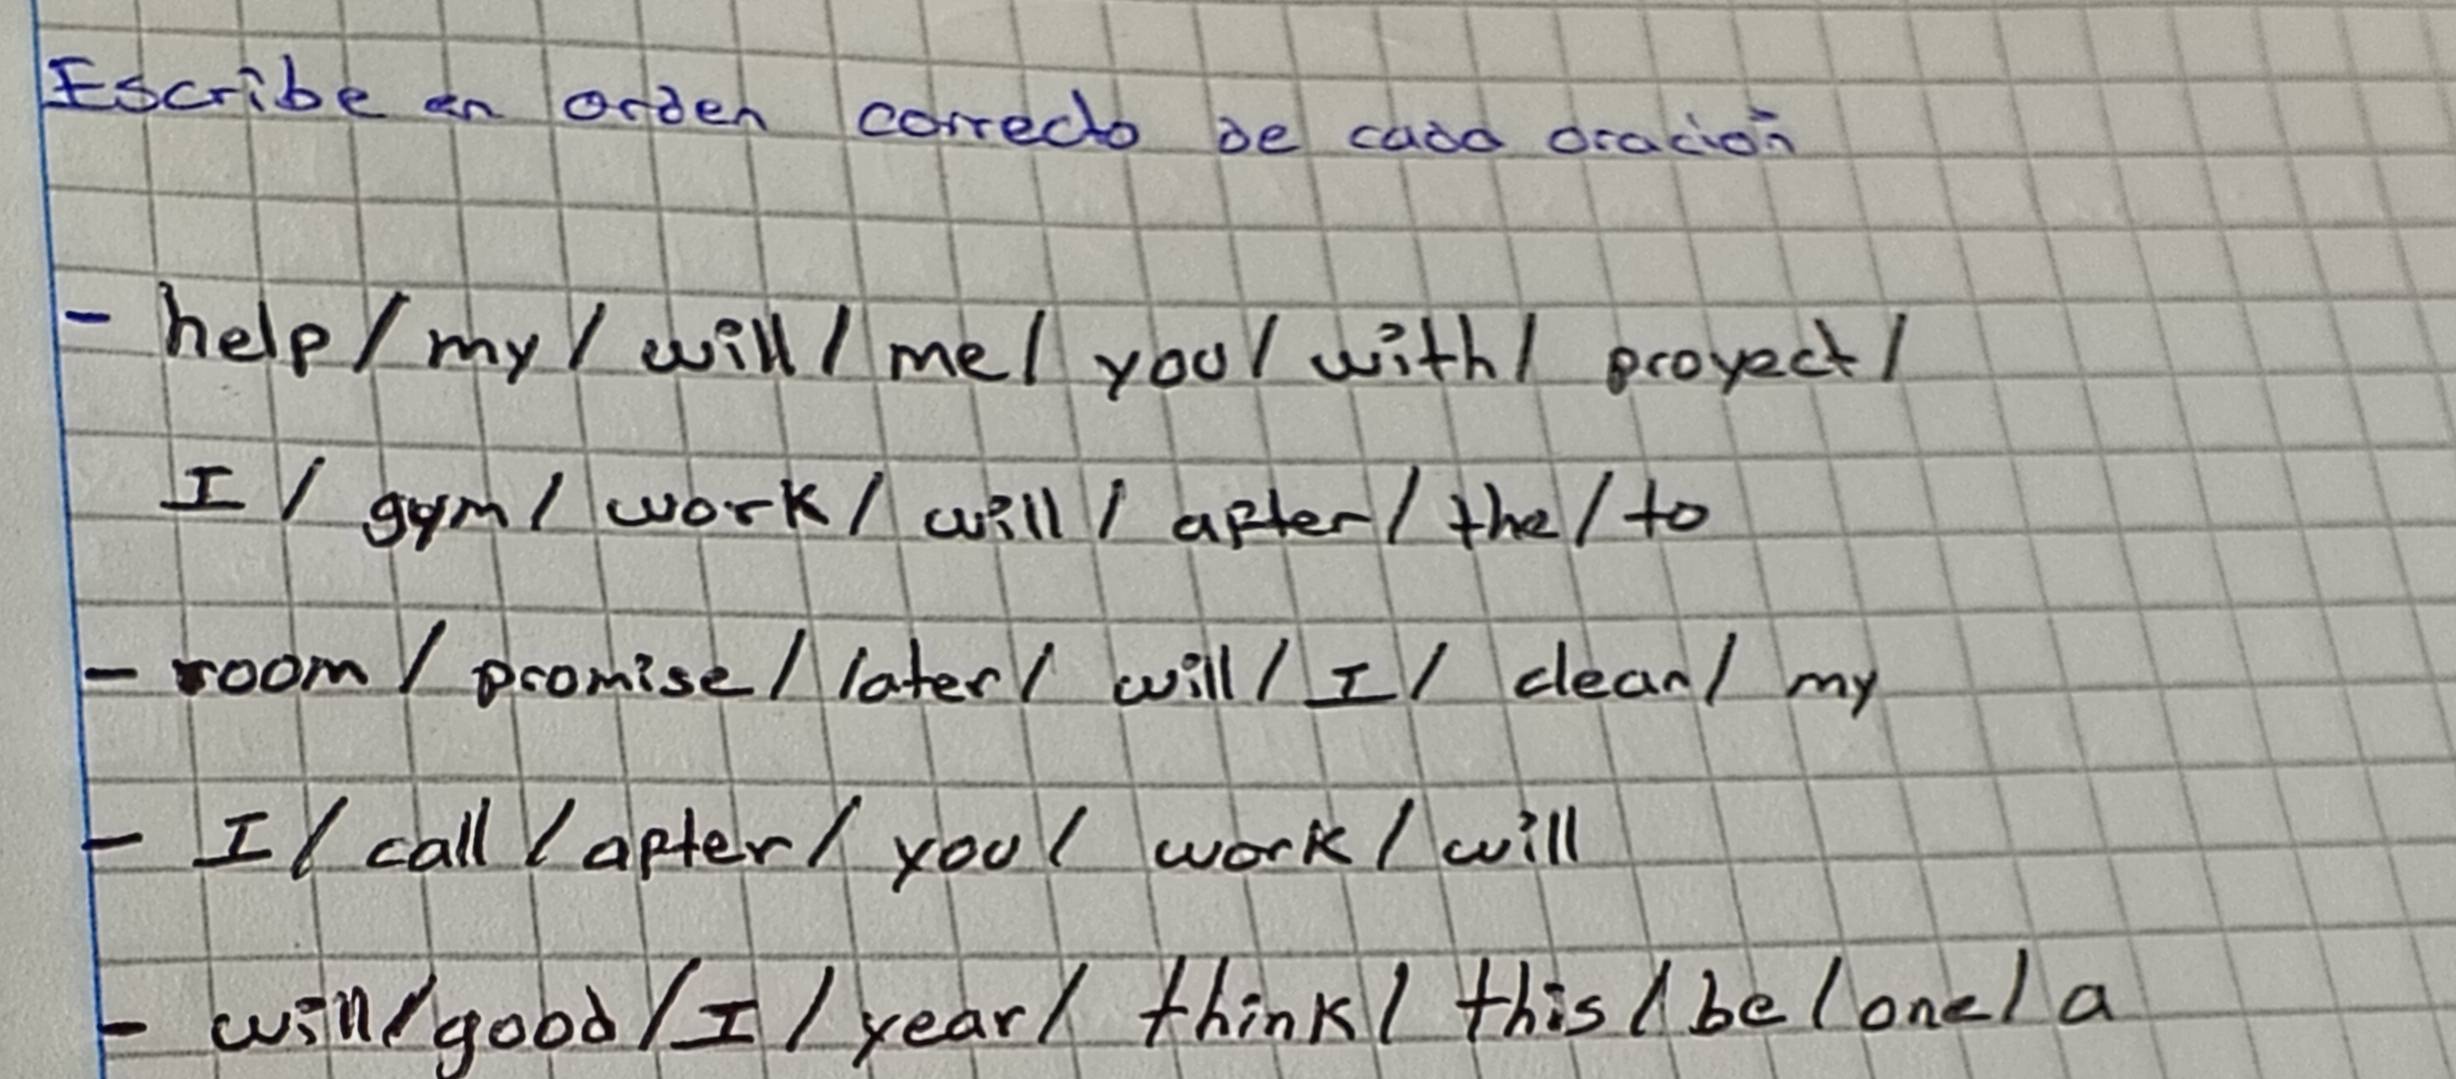 Escribe en orden correcto de cada oración
- help / my / will / me / you / with / proyect /
I / gym / work / will / after / the / to
- room / promise / later / will / I / clean / my
- I / call / after / you / work / will
- will / good / I / year / think / this / be / one / a